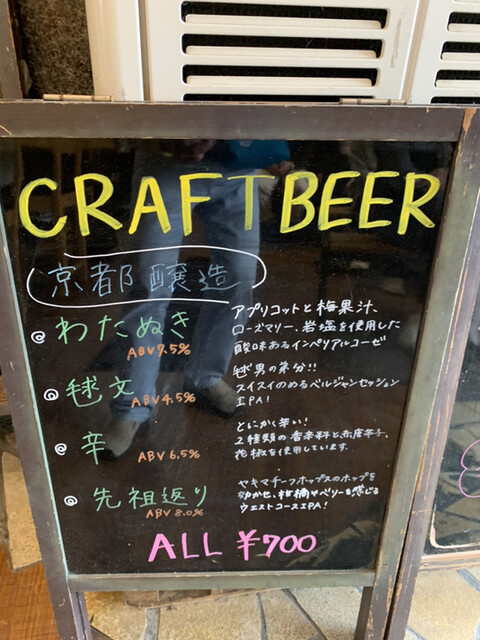 CRAFT BEER
京都醸造
わたぬき
ABV 7.5%
アプリコットと梅果汁、
ローズマリー、岩塩を使用した
酸味あるインペリアルゴーゼ
毬文
ABV 4.5%
毬男の弟分!!
スイスイのめるベルジャンセッション
IPA!
辛
ABV 6.5%
とにかく辛い!
2種類の香辛料と赤唐辛子、
花椒を使用しています。
先祖返り
ABV 8.0%
ヤキマチーフホップスのホップを
効かせ、柑橘やベリーも感じる
ウエストコースIPA!
ALL ¥700